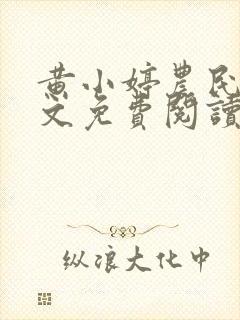 黄小婷農民
文免費閱讀
纵浪大化中